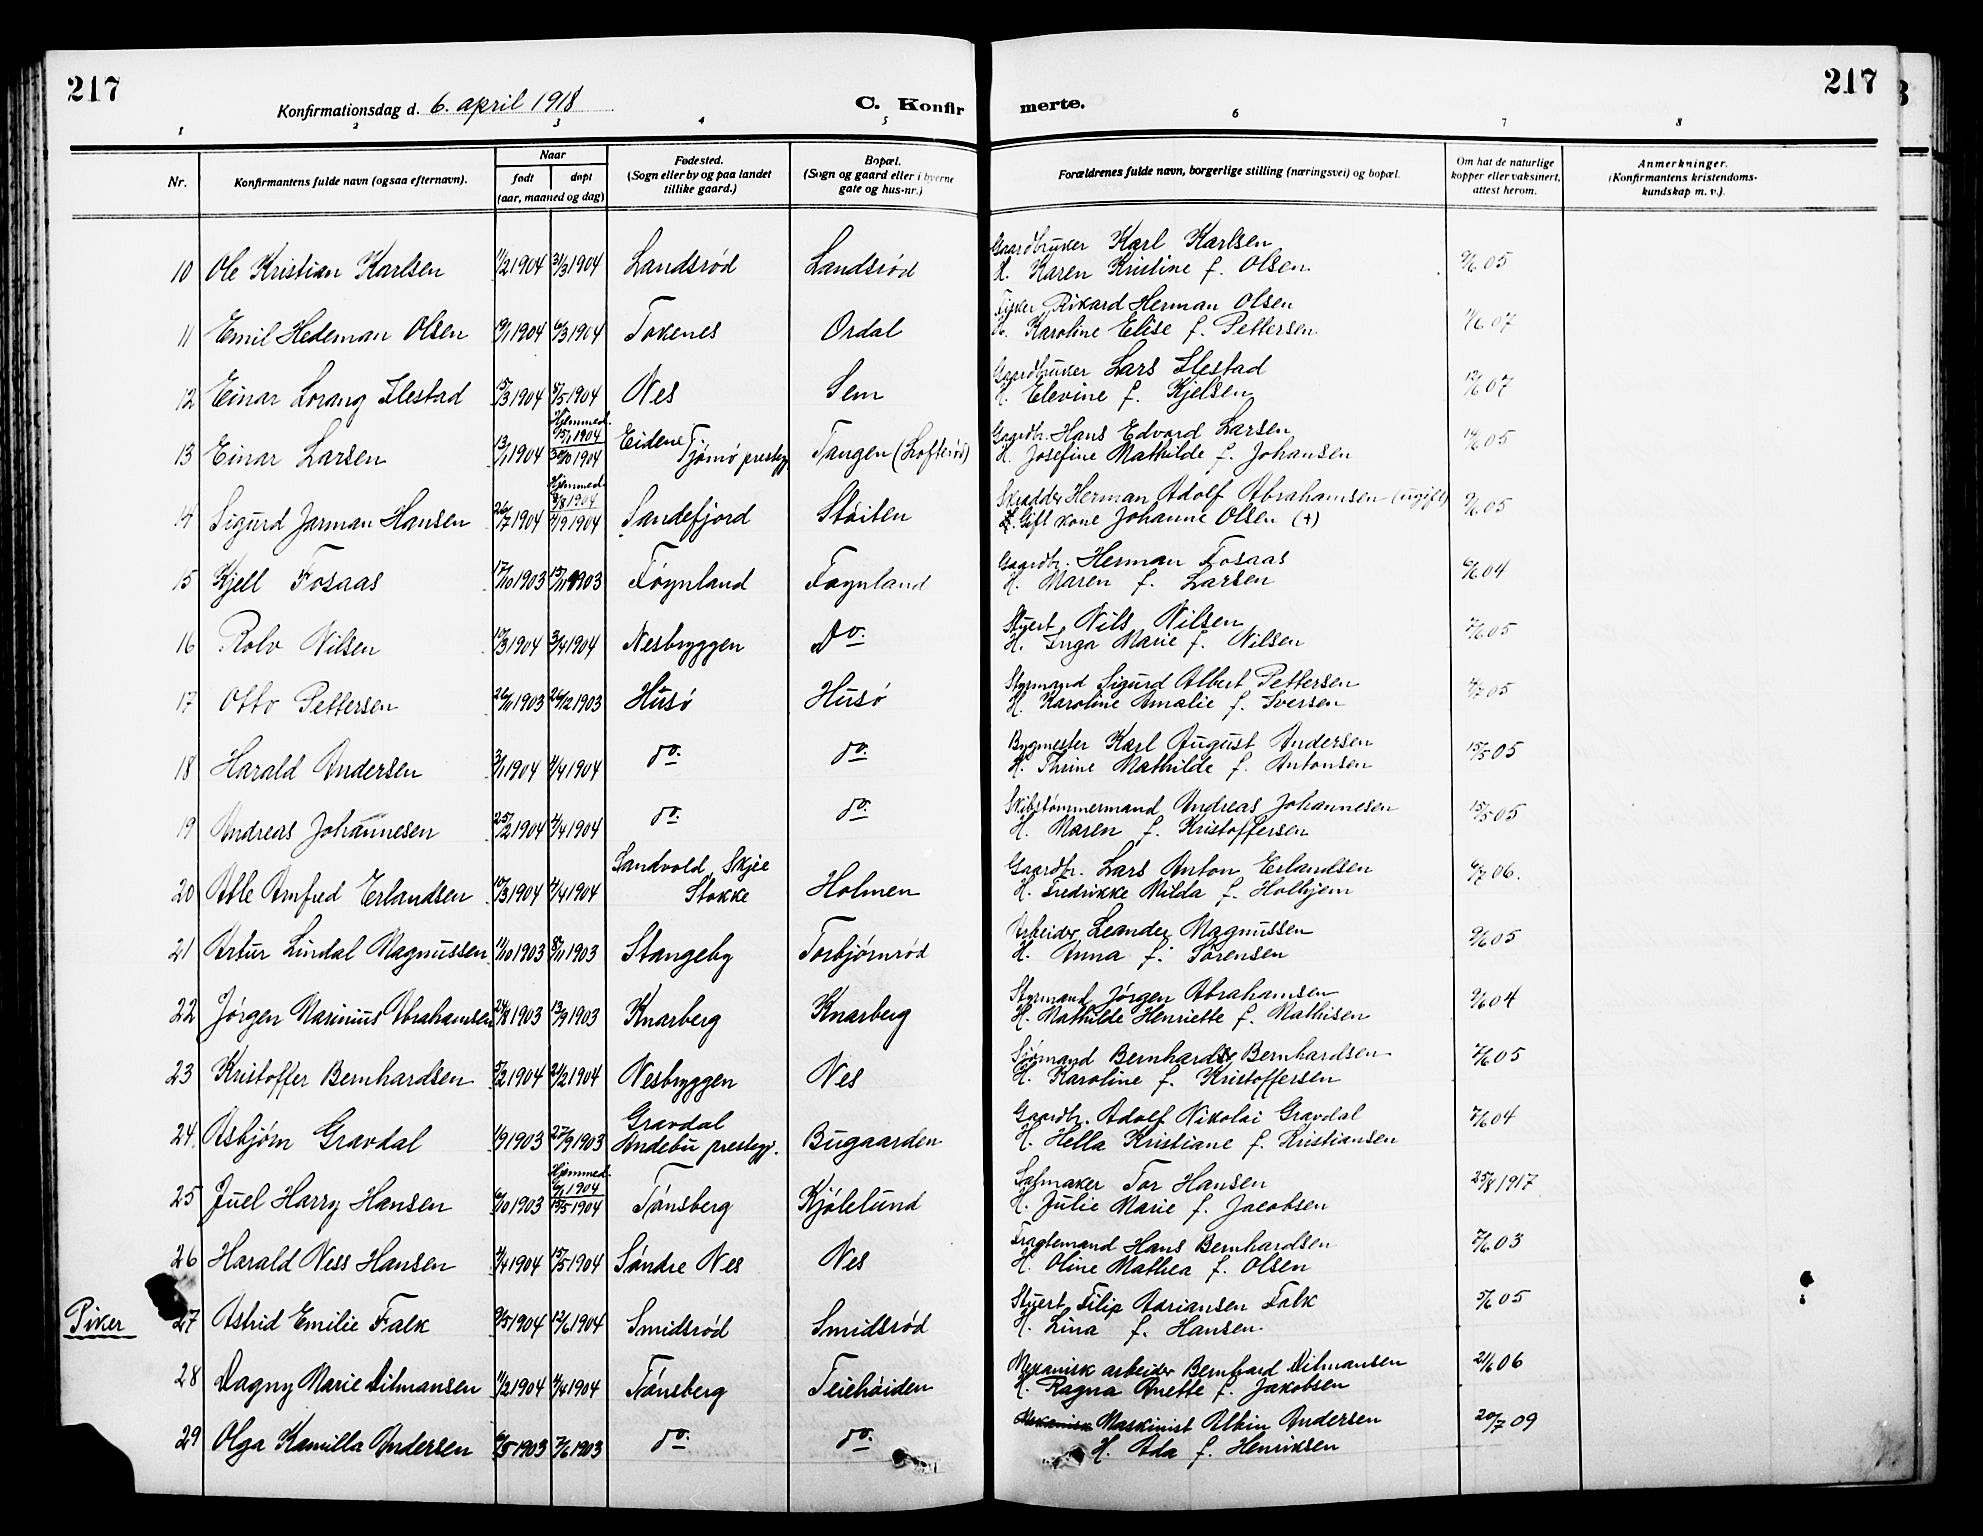 217
217
Konfirmationsdag d. 6. april 1918
C. Konfir
merte.
1 2 3 4 5 6 7 8
Nr.
Konfirmantens fulde navn (ogsaa efternavn).
Naar
født døpt
(aar, maaned og dag)
Fødested.
(Sogn eller by og paa landet
tillike gaard.)
Bopæl.
(Sogn og gaard eller i byerne
gate og hus-nr.)
Forældrenes fulde navn, borgerlige stilling (næringsvei) og bopæl.
Om hat de naturlige
kopper eller vaksinert,
attest herom.
Anmerkninger.
(Konfirmantens kristendoms-
kundskap m. v.)
Gaardbruker Karl Karlsen
10 Ole Kristian Karlsen 11/2 1904 31/3 1904 Landsrød Landsrød H. Karen Kristine f. Olsen 05
Rikard Herman Olsen
11 Emil Hedeman Olsen 1904 3/4 1904 Tokenes Ordal H. Karoline Elise f. Pettersen 07
Gaardbruker Lars Ilestad
12 Einar Lorang Ilestad 15/3 1904 8/5 1904 Nes Sem H. Elevine f. Kjelsen 07
Hjemmed.
15/1 1904
Gaardbr. Hans Edvard Larsen
13 Einar Larsen 13/1 1904 30/10 1904 Eidene Tjømø prestegj. Tangen (Lofterød) H. Josefine Mathilde f. Johansen 05
Hjemmed.
8/8 1904
Skrædder Herman Adolf Abrahamsen (ugift)
14 Sigurd Jarman Hansen 26/7 1904 1904 Sandefjord Støiten Gift kone Johanne Olsen (+) 05
Gaardbr. Herman Fosaas
15 Kjell Fosaas 17/10 1903 15/11 1903 Føynland Føynland H. Maren f. Larsen 04
Stuert Nils Nilsen
16 Rolv Nilsen 10/3 1904 3/4 1904 Nesbryggen Do. H. Inga Marie f. Nilsen 7/6 05
Styrmand Sigurd Albert Pettersen
17 Otto Pettersen 26/11 1903 26/12 1903 Husø Husø H. Karoline Amalie f. Iversen 05
Bygmester Karl August Andersen
18 Harald Andersen 3/1 1904 4/4 1904 do. do. H. Thrine Mathilde f. Antonsen 15/5 05
Skibstømmermand Andreas Johannesen
19 Andreas Johannesen 25/2 1904 4/4 1904 do. do. H. Maren f. Kristoffersen 15/5 05
Sandvold, Skjee
Gaardbr. Lars Anton Erlandsen
20 Atle Arnfred Erlandsen 10/3 1904 4/4 1904 Stokke Holmen H. Fredrikke Milda f. Holhjem 06.
Arbeider Leander Magnussen
21 Artur Lindal Magnussen 11/10 1903 8/11 1903 Stangeby Torbjørnrød H. Anna f. Sørensen 05
Styrmand Jørgen Abrahamsen
22 Jørgen Marinius Abrahamsen 24/8 1903 13/9 1903 Knarberg Knarberg H. Mathilde Henriette f. Mathisen 04
Sjømand Bernhard Bernhardsen
23 Kristoffer Bernhardsen 5/2 1904 21/2 1904 Nesbryggen Nes H. Karoline f. Kristoffersen 7/6 05
Gravdal
Gaardbr. Adolf Nikolai Gravdal
24 Asbjørn Gravdal 1/9 1903 27/9 1903 Andebu prestegj. Bugaarden H. Hella Kristiane f. Kristiansen 7/6 04
Hjemmed.
6/1 1904
Salmaker Tor Hansen
25 Juel Harry Hansen 6/10 1903 15/5 1904 Tønsberg Kjølelund H. Julie Marie f. Jacobsen 25/8 1917
Fragtemand Hans Bernhardsen
26 Harald Ness Hansen 4/4 1904 15/5 1904 Søndre Nes Nes H. Oline Mathea f. Olsen 7/6 03
Stuert Filip Adriansen Falk
Piker 27 Astrid Emilie Falk 9/5 1904 12/6 1904 Smidsrød Smidsrød H. Lina f. Hansen 05
Mekanisk arbeider Bernhard Dilmansen
28 Dagny Marie Dilmansen 11/2 1904 4/4 1904 Tønsberg Teiehøiden H. Ragna Anette f. Jakobsen 21/6 06
Mekanisk Maskinist Albin Andersen
29 Olga Kamilla Andersen 6/5 1903 7/6 1903 do. do. H. Ada f. Henriksen 20/7 09